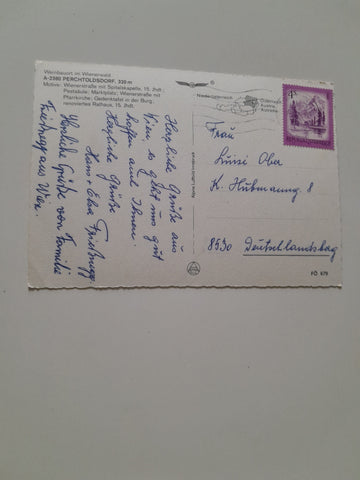 Weinbauort im Wienerwald
A-2380 PERCHTOLDSDORF, 320 m
Motive: Wienerstraße mit Spitalskapelle, 15. Jhdt.;
Pestsäule; Marktplatz; Wienerstraße mit
Pfarrkirche; Gedenktafel in der Burg;
renoviertes Rathaus, 15. Jhdt.
Herzliche Grüße aus
Wien, es geht uns gut
hoffen auch Ihnen.
Herzliche Grüße
Hans + Elisa
Herzliche Grüße von Familie
aus Wien.
Niederösterreich
4 S
Frau
Luisi Ober
K. Hubmanng. 8
8530 Deutschlandsbag
PÖ 679